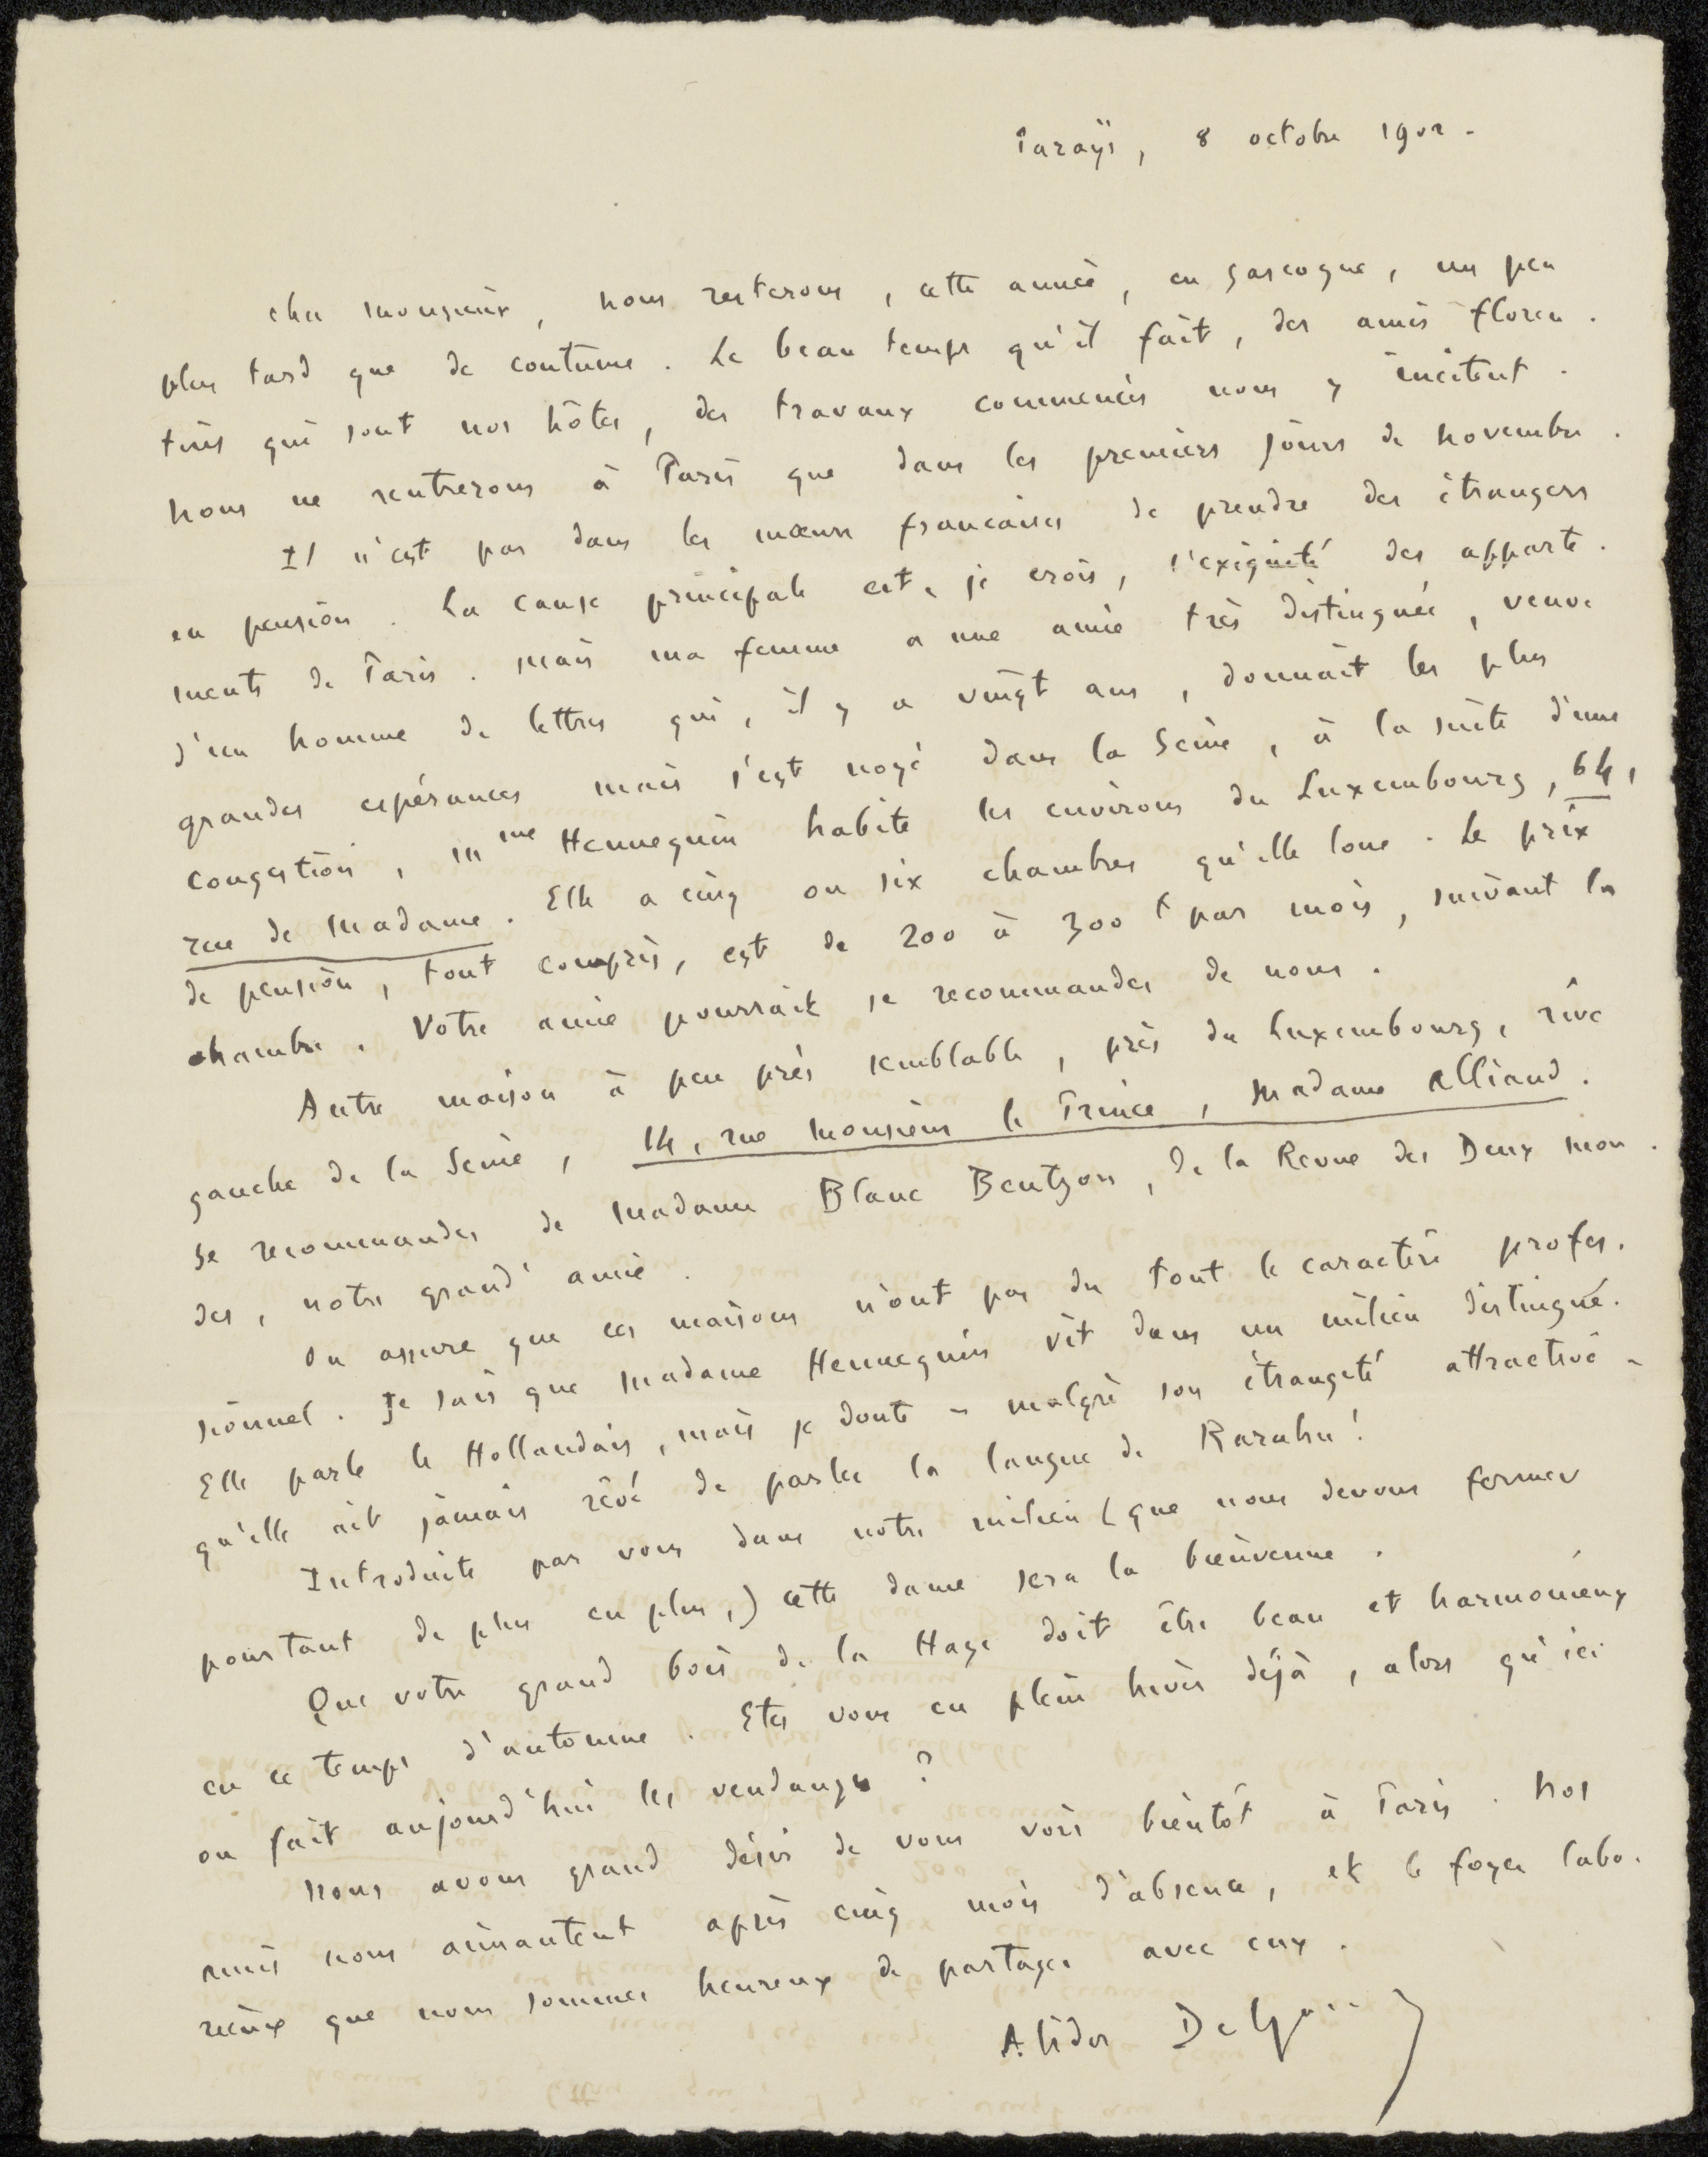 Parays, 8 octobre 1902.
cher monsieur, nous resterons, cette année, en gascogne, un peu
plus tard que de coutume. Le beau temps qu'il fait, des amis floren.
tins qui sont nos hôtes, des travaux commencés nous y incitent.
nous ne rentrerons à Paris que dans les premiers jours de novembre.
Il n'est pas dans les mœurs francaises de prendre des étrangers
en pension. La cause principale est, je crois, l'exiguité des apparte.
ments de Paris. mais ma femme a une amie très distinguée, veuve
d'un homme de lettres qui, il y a vingt ans, donnait les plus
grandes espérances mais s'est noyé dans la Seine, à la suite d'une
congestion, Mme Hennequin habite les environs du Luxembourg, 64,
rue de Madame. Elle a cinq ou six chambres qu'elle loue. Le prix
de pension, tout compris, est de 200 à 300 f par mois, suivant la
chambre. Votre amie pourrait se recommander de nous.
Autre maison à peu près semblable, près du Luxembourg, rive
gauche de la Seine, 14, rue Monsieur le Prince, Madame Alliaud.
Se recommander de Madame Blanc Bentzon, de la Revue des Deux Mon.
des, notre grand' amie.
On assure que ces maisons n'ont pas du tout le caractère profes.
sionnel. Je sais que Madame Hennequin vit dans un milieu distingué.
Elle parle le Hollandais, mais je doute - malgré son étrangeté attractive -
qu'elle ait jamais rêvé de parler la langue de Rarahu!
Introduite par vous dans notre milieu (que nous devons fermer
pourtant de plus en plus,) cette dame sera la bienvenue.
Que votre grand bois de la Haye doit être beau et harmonieux
en ce temps d'automne. Etes vous en plein hiver déjà, alors qu'ici
on fait aujourd'hui les vendanges?
Nous avons grand désir de vous voir bientôt à Paris. Nos
amis nous aimantent après cinq mois d'absence, et le foyer labo.
rieux que nous sommes heureux de partager avec eux.
Alidor Delzant